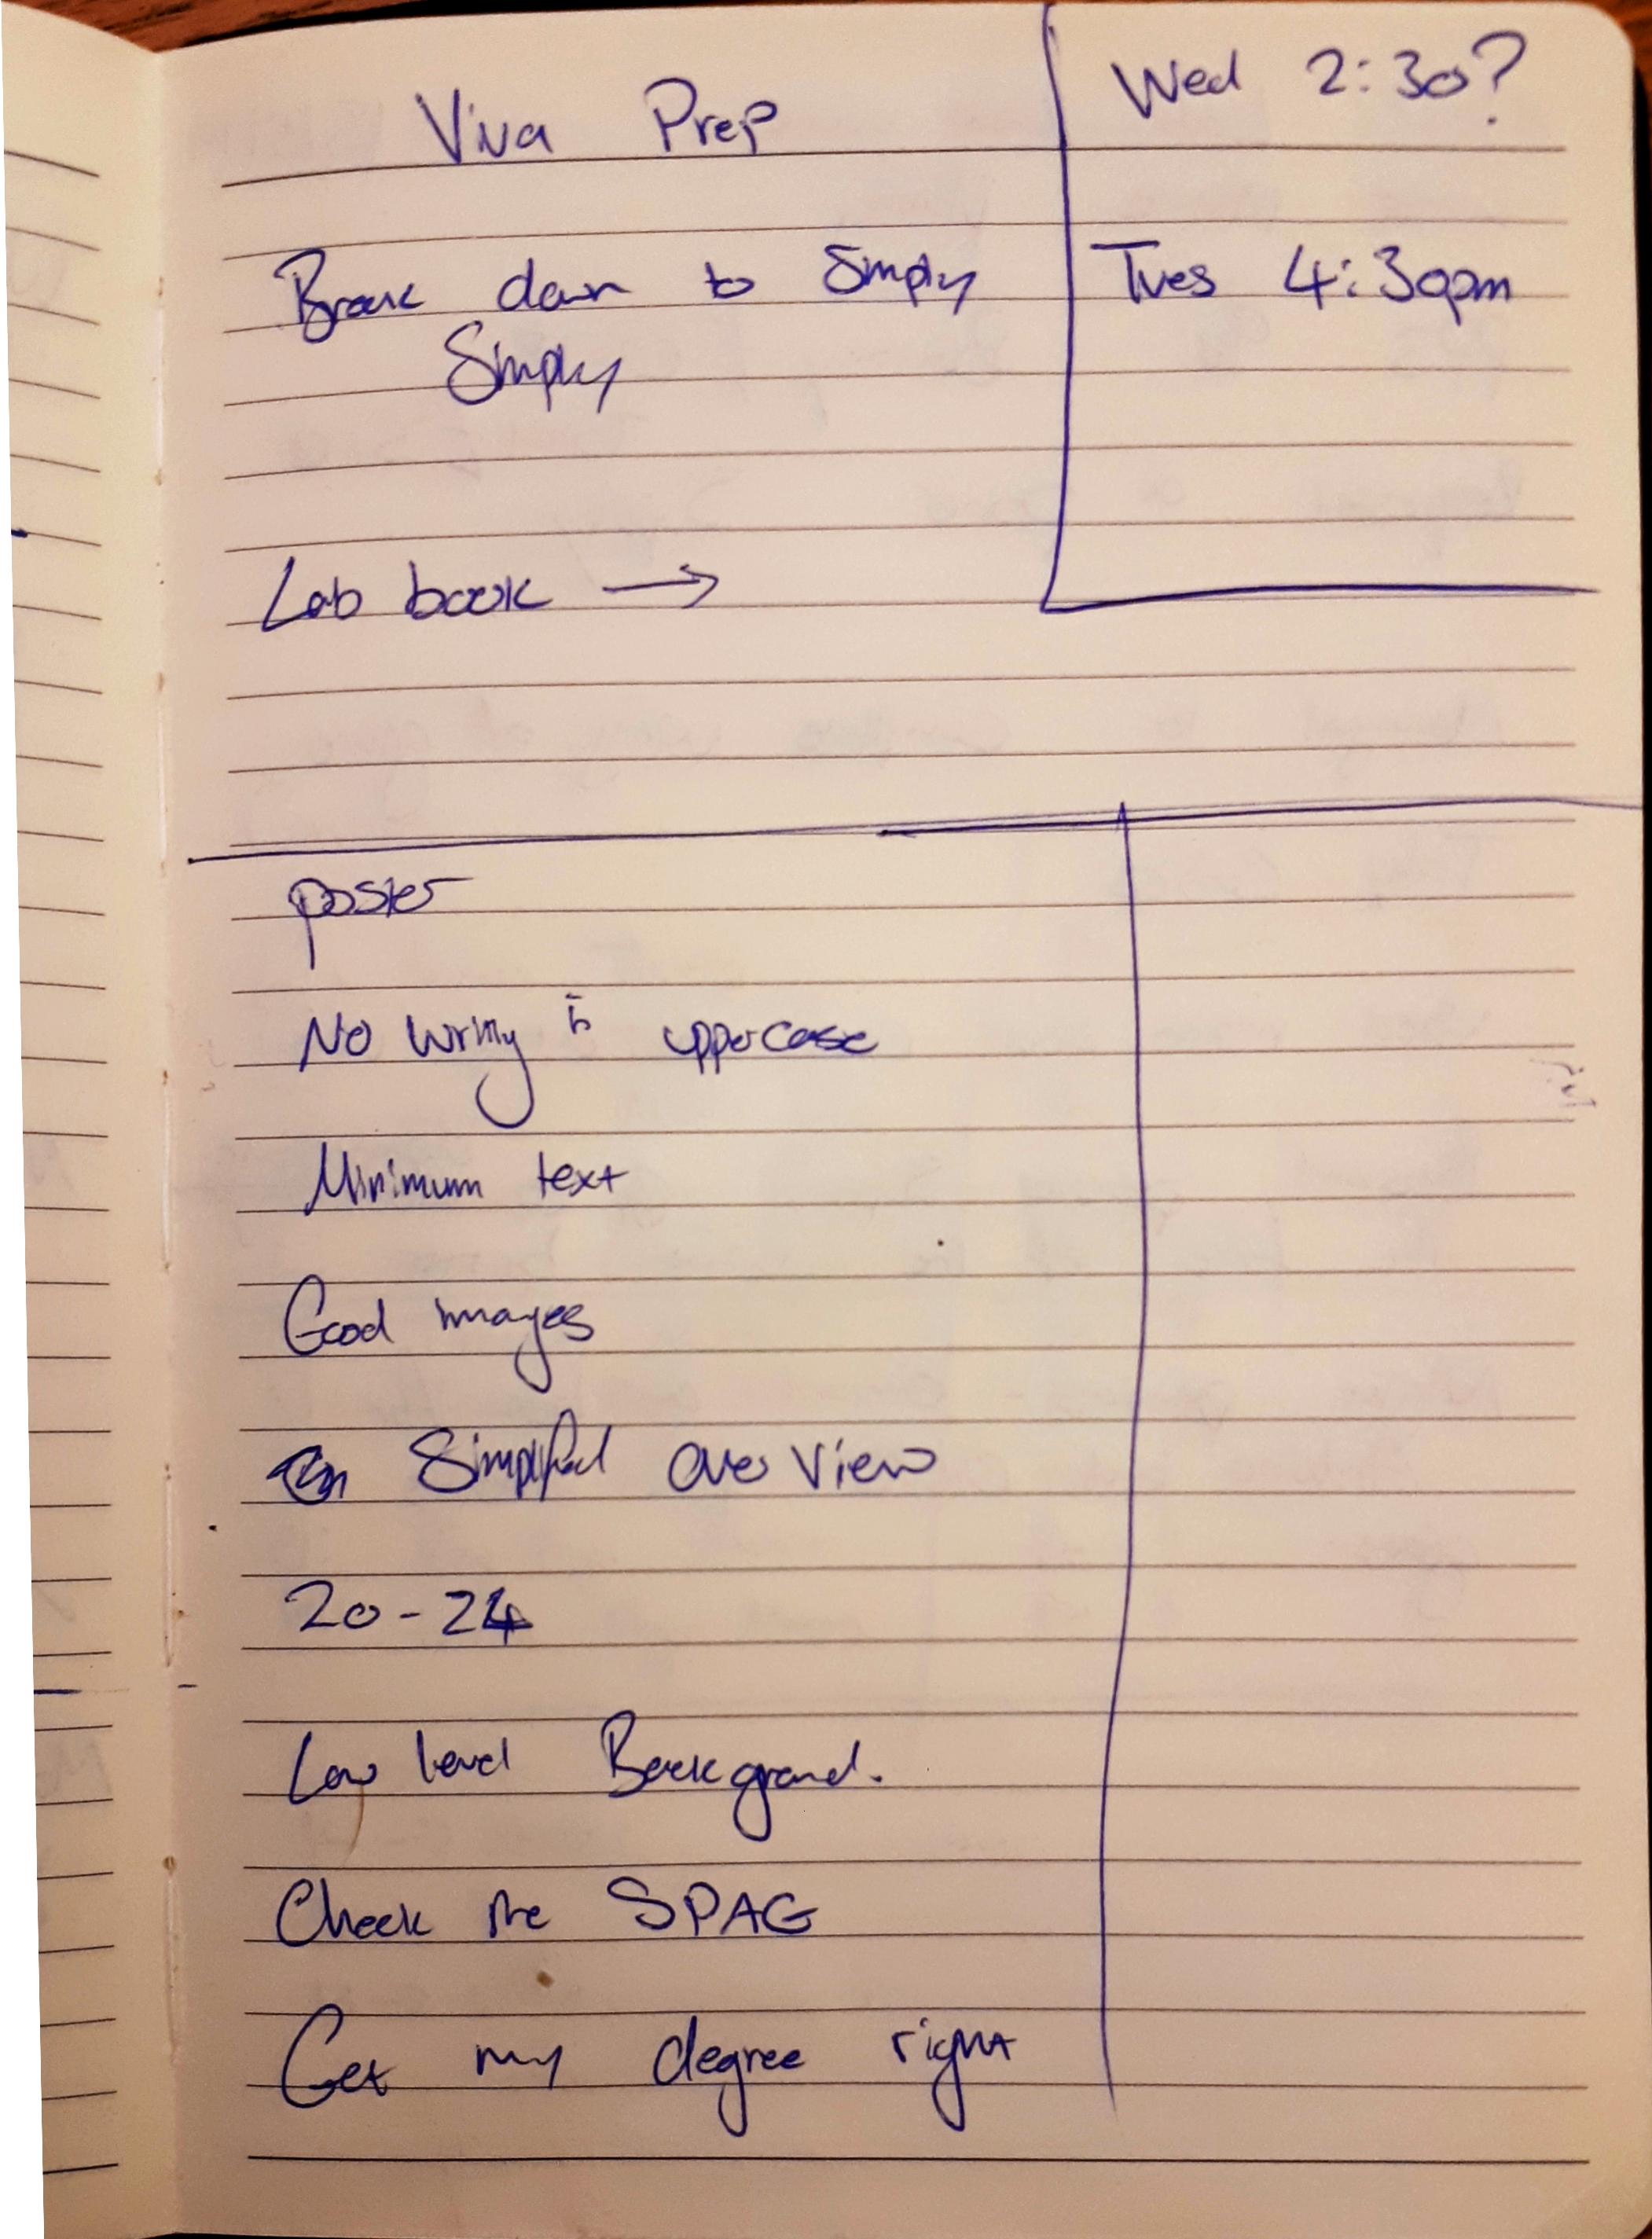 Viva Prep
Wed 2:30?
Break down to Simply
Simply
Tues 4:30pm
Lab book →
poster
No writing in uppercase
Minimum text
Good images
Simplified overview
20-24
Low level Background.
Check the SPAG
Get my degree right